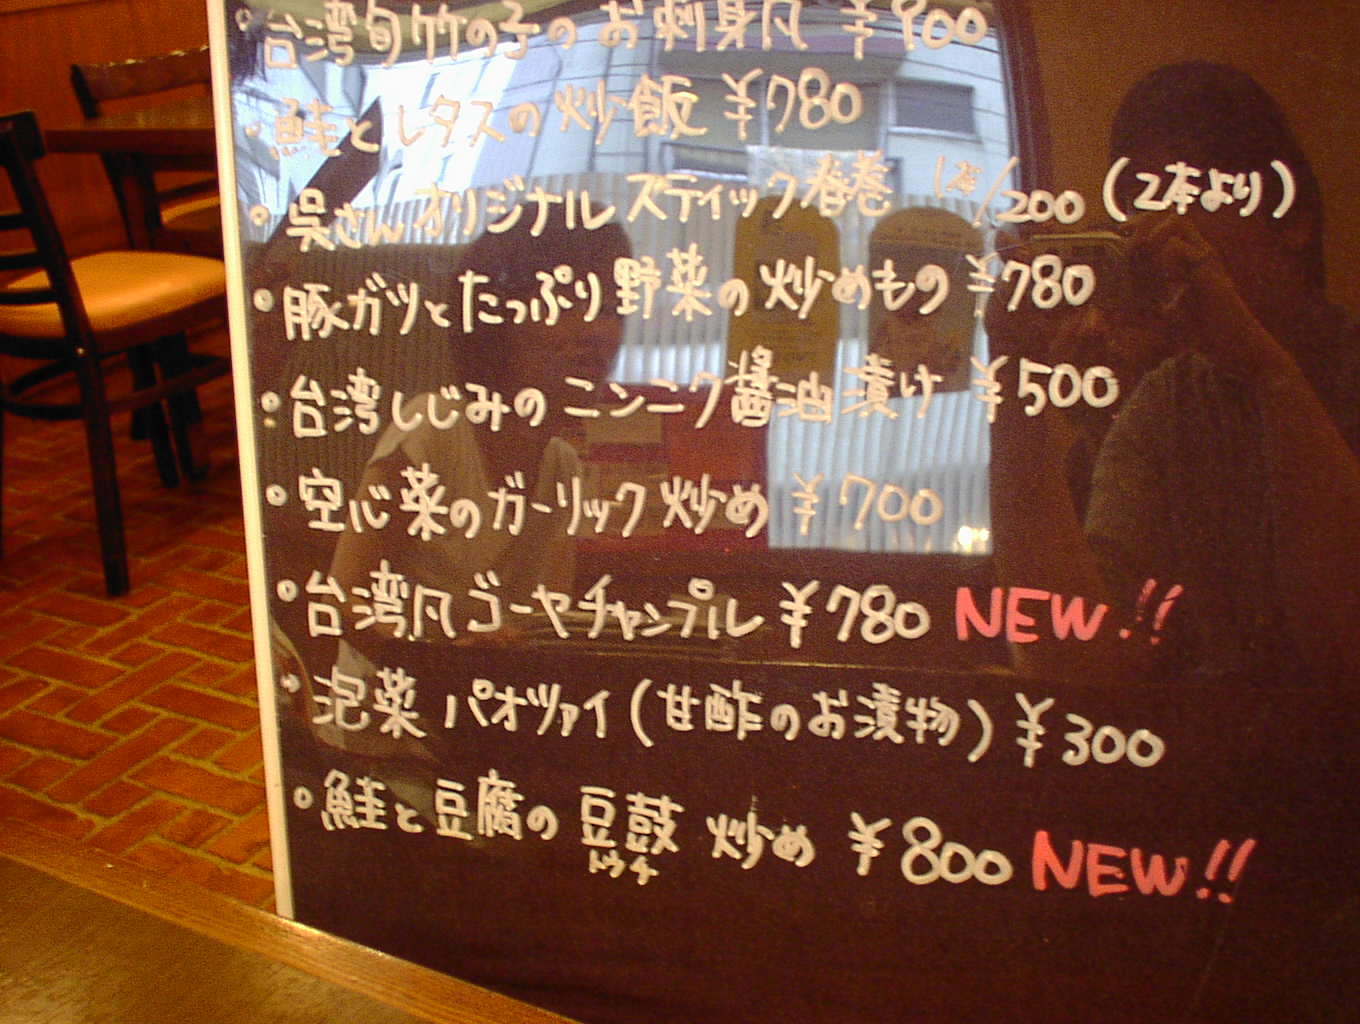 台湾旬竹の子のお刺身風 ¥800
鮭とレタスの炒飯 ¥780
呉さんオリジナルスティック春巻 1本/200 (2本より)
豚ガツとたっぷり野菜の炒めもの ¥780
台湾しじみのニンニク醤油漬け ¥500
空心菜のガーリック炒め ¥700
台湾風ゴーヤチャンプル ¥780 NEW!!
泡菜 パオツァイ(甘酢のお漬物) ¥300
鮭と豆腐の豆鼓炒め ¥800 NEW!!
トウチ